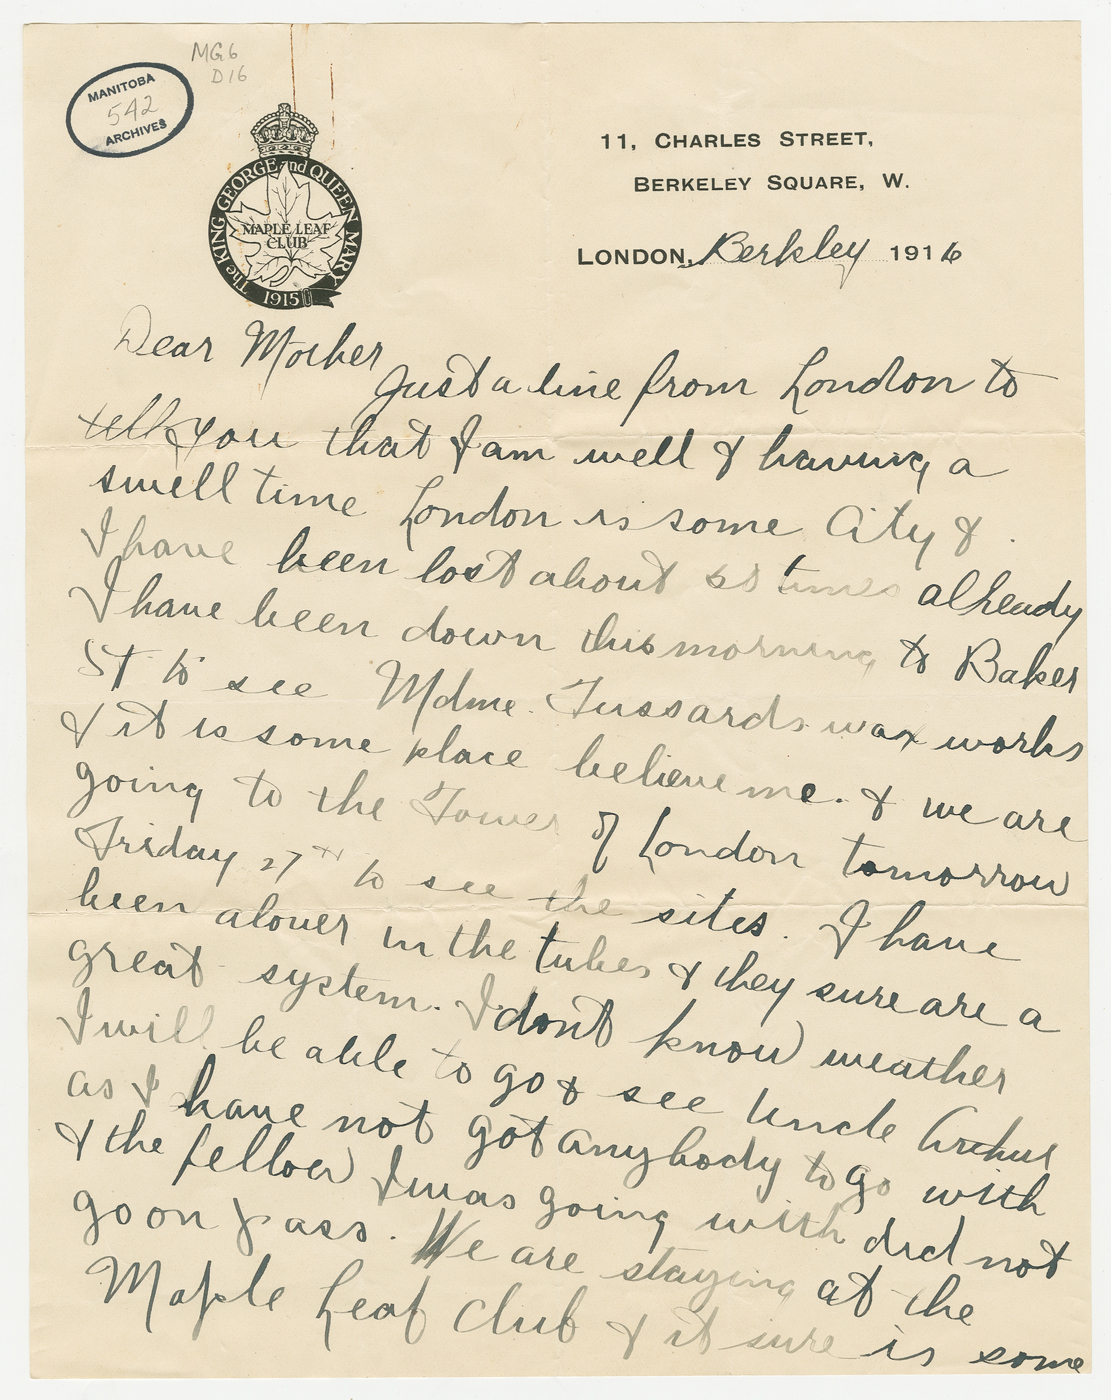 MG6
D16
MANITOBA
542
ARCHIVES
The KING GEORGE and QUEEN MARY
MAPLE LEAF
CLUB
1915
11, CHARLES STREET,
BERKELEY SQUARE, W.
LONDON, Berkley 1916
Dear Mother
Just a line from London to
tell you that I am well & having a
swell time London is some City &
I have been lost about times alheady
I have been down this morning to Baker
St to see Mdme. Tussards wax works
& it is some place believe me. & we are
going to the Tower of London tomorrow
Friday 27th to see the sites. I have
been alover in the tubes & they sure are a
great system. I dont know weather
I will be able to go & see Uncle Arthur
as I have not got anybody to go with
& the fellow I was going with did not
go on pass. We are staying at the
Maple Leaf Club & it sure is some